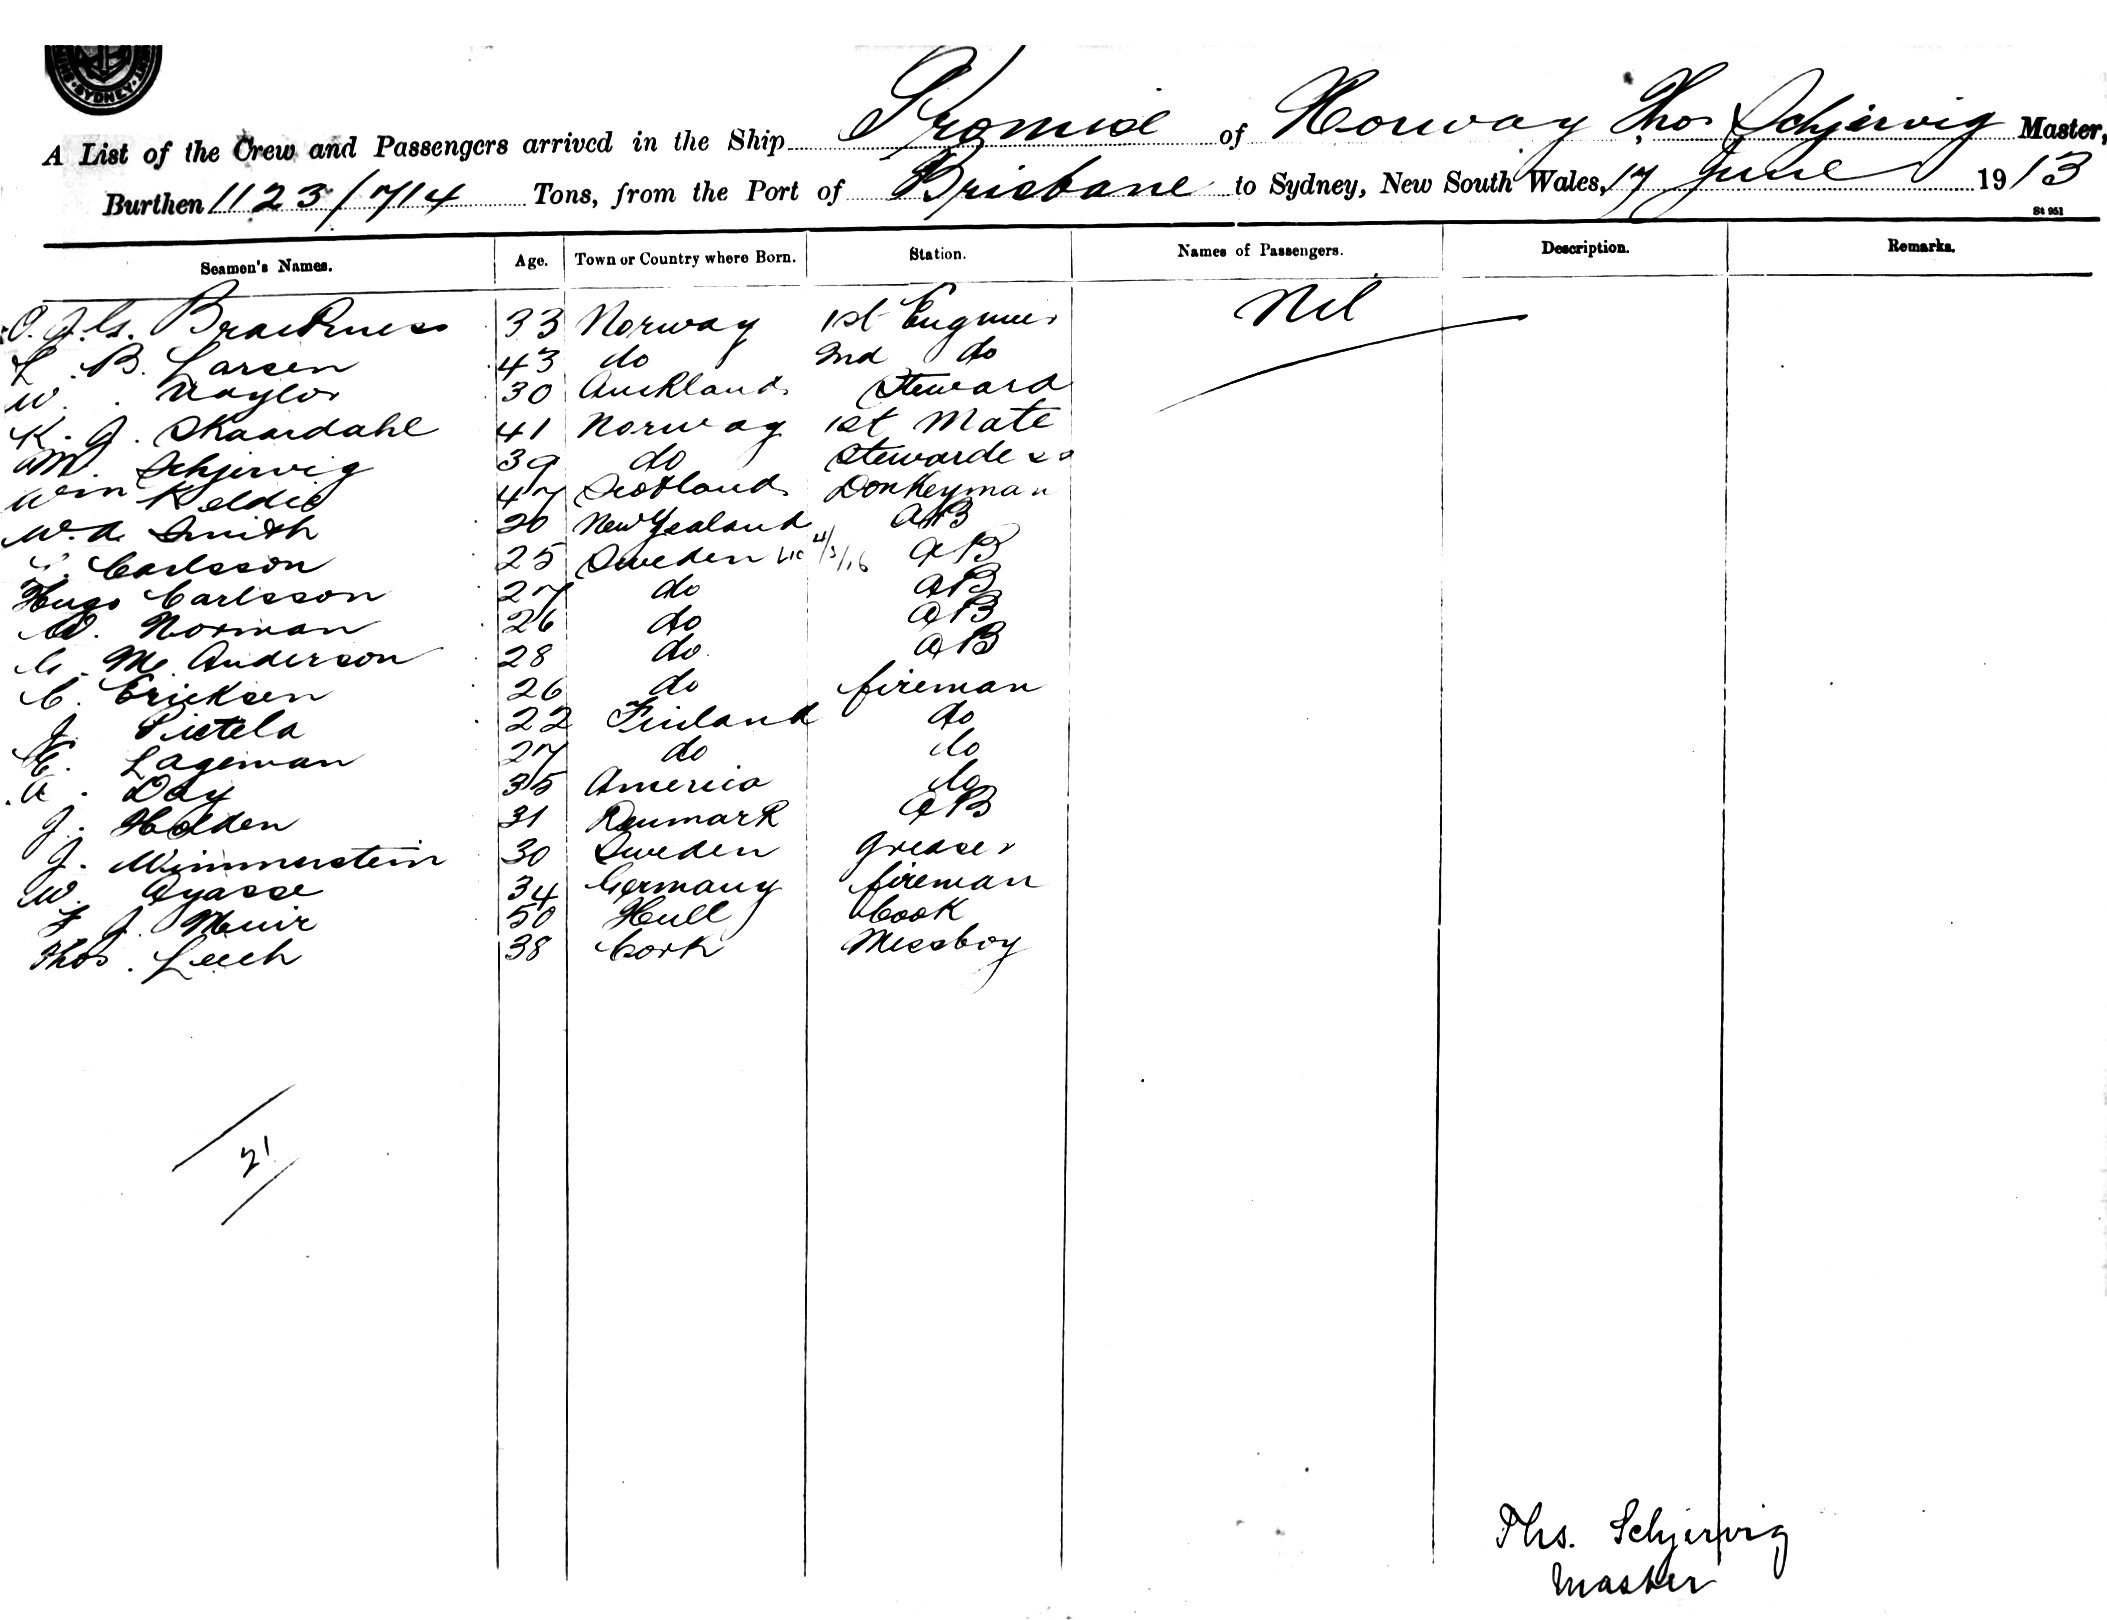 SYDNEY
A List of the Crew and Passengers arrived in the Ship Promise of Norway Thos Schjervig Master,
Burthen 1123/714 Tons, from the Port of Brisbane to Sydney, New South Wales, 17 June 1913
St 951
Seamen's Names. Age. Town or Country where Born. Station. Names of Passengers. Description. Remarks.
33 Norway 1st Engineer Nil
L. B. Larsen 43 do 2nd do
W. Naylor 30 Auckland Steward
K. J. Skaardahl 41 Norway 1st Mate
M. Schjervig 39 do Stewardess
Wm Keddie 47 Scotland Donkeyman
W. A. Smith 20 New Zealand AB
Carlsson 25 Sweden AB
Hugo Carlsson 27 do AB
W. Norman 26 do AB
G. M. Anderson 28 do AB
C. Ericksen 26 do fireman
J. Pietela 22 Finland do
E. Lageman 27 do do
A. Day 35 America do
J. Holden 31 Denmark AB
J. Wimmerstein 30 Sweden greaser
W. Ayasse 34 Germany fireman
F J. Muir 50 Hull Cook
Thos. Leech 38 Cork Messboy
21
Ths. Schjervig
Master